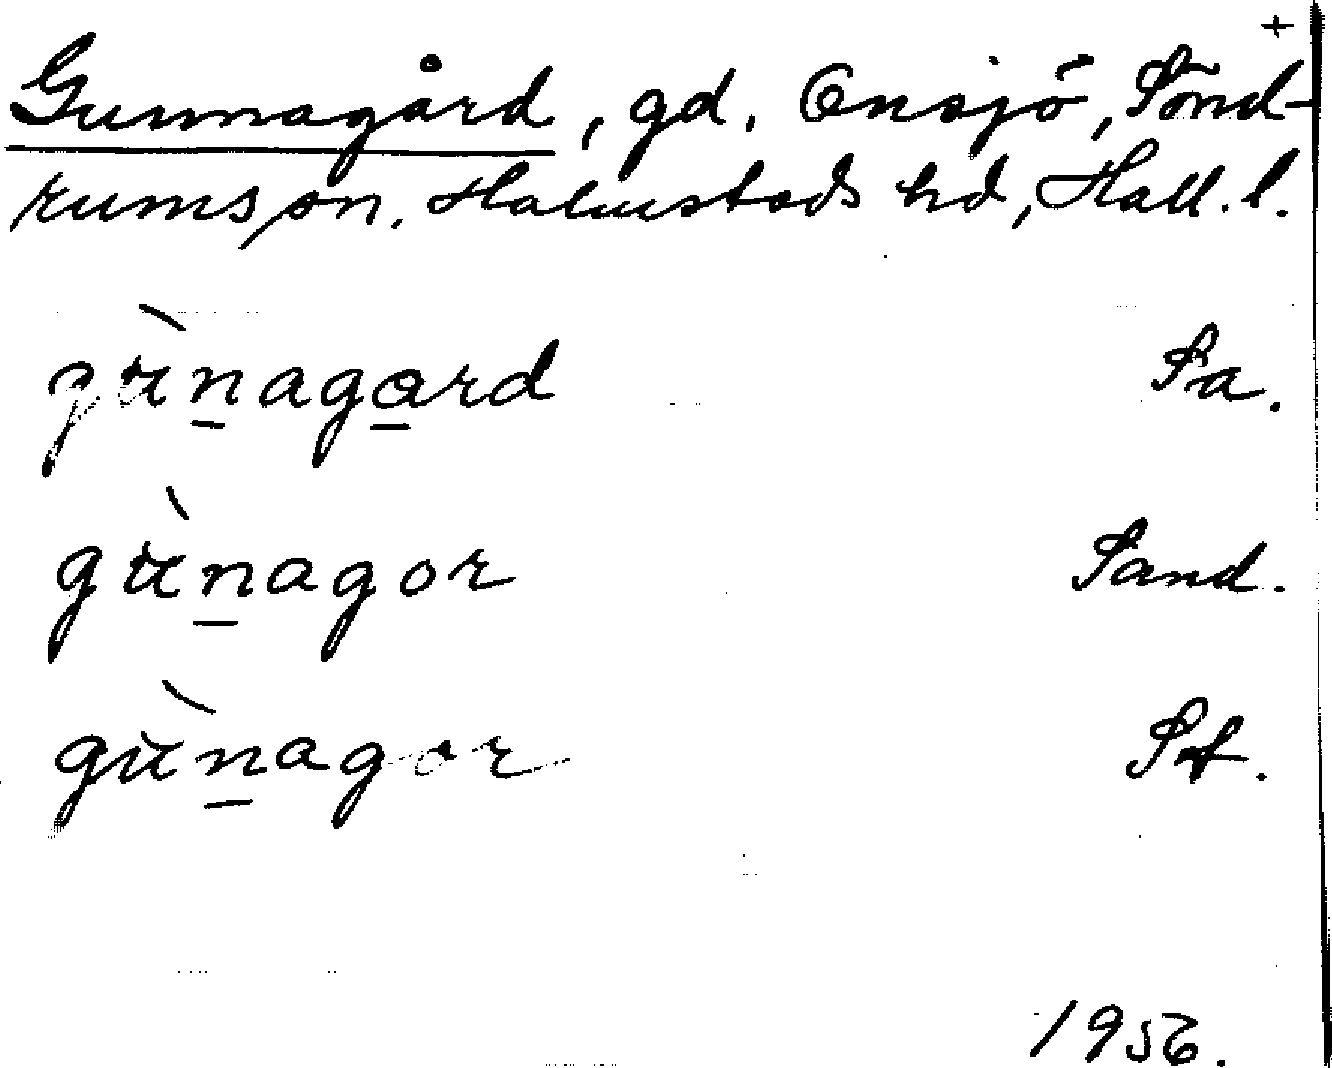 +
Gunnagård, gd, Ensjö, Sönd-
rums sn, Halmstads hd, Hall. l.
gùnagard Sa.
gùnagor Sand.
gùnagor St.
1956.